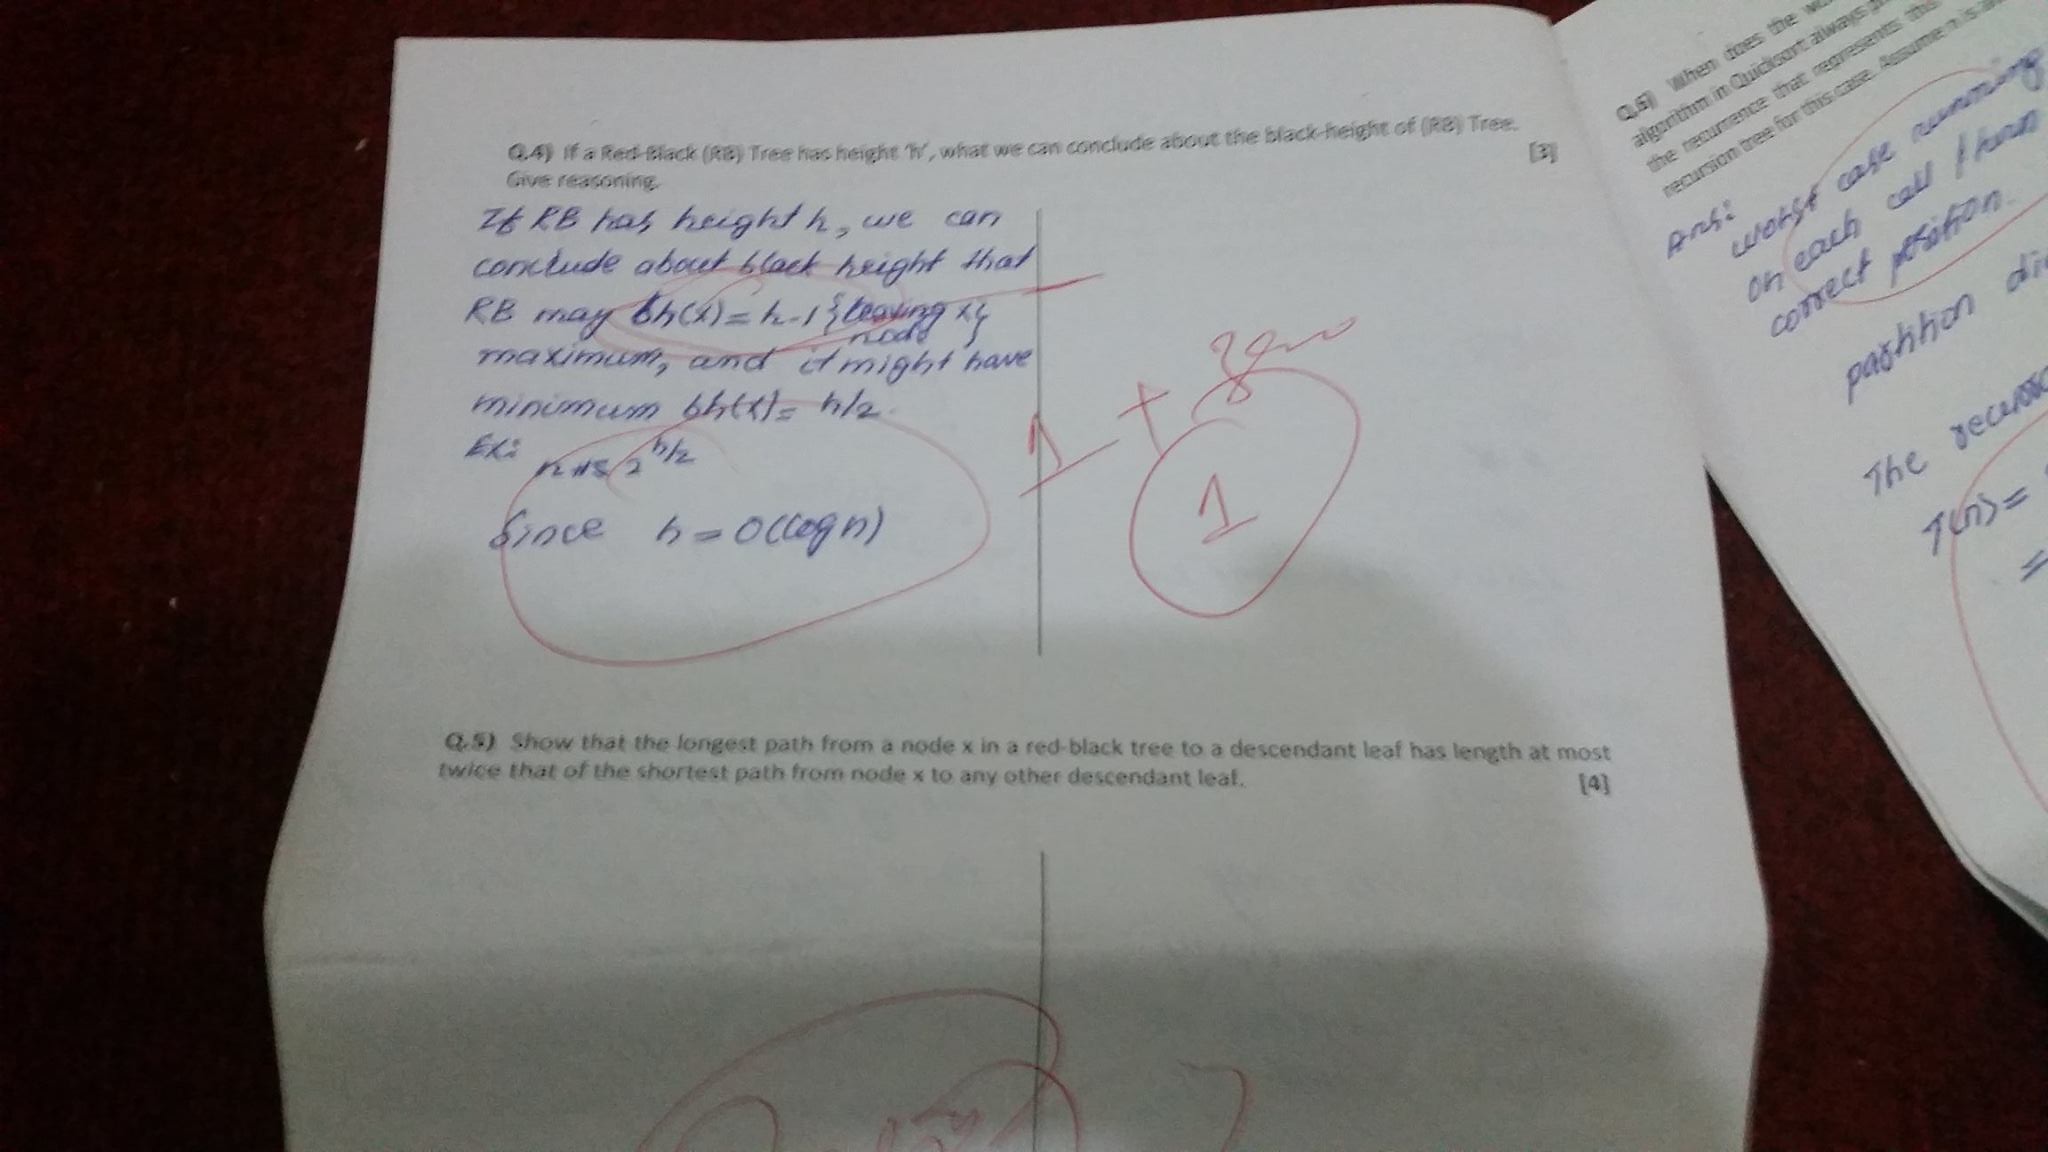 Q.4) If a Red-Black (RB) Tree has height 'h', what we can conclude about the black-height of (RB) Tree.
Give reasoning. [3]
If RB has height h, we can
conclude about black height that
RB may bh(x) = h-1 {leaving x}
node
maximum, and it might have
minimum bh(x) = h/2.
Ex:
2^h/2
Since h = O(log n)
1 +
1
Q.5) Show that the longest path from a node x in a red-black tree to a descendant leaf has length at most
twice that of the shortest path from node x to any other descendant leaf. [4]
Q.6) When does the
algorithm in Quicksort always
the recurrence that represents this
recursion tree for this case. Assume n is
Ans:
worst case running
on each call
correct position.
partition
The
T(n) =
=